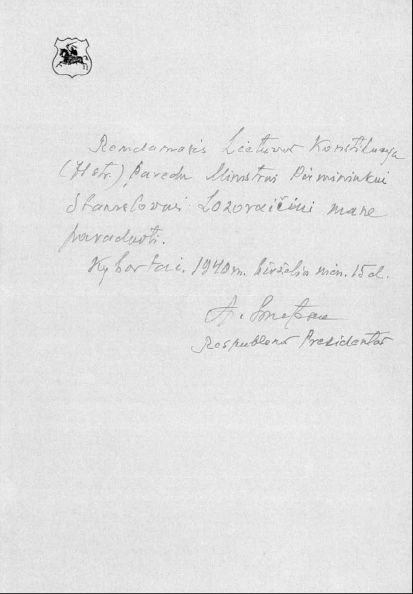 Remdamasis Lietuvos Konstitucija
(71 str.) pavedu Ministrui Pirmininkui
Stanislovui Lozoraičiui mane
pavaduoti.
Kybartai. 1940 m. birželio mėn. 15 d.
A. Smetona
Respublikos Prezidentas